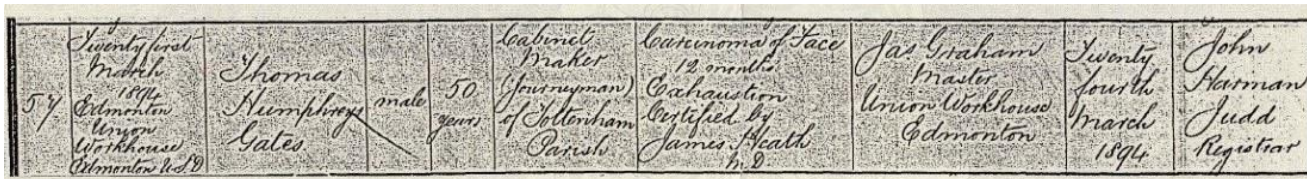 57
Twenty first
March
1894
Edmonton
Union
Workhouse
Edmonton U.S.D
Thomas
Humphreys
Gates
male
50
years
Cabinet
Maker
(Journeyman)
of Tottenham
Parish
Carcinoma of Face
12 months
Exhaustion
Certified by
James Heath
M D
Jas Graham
Master
Union Workhouse
Edmonton
Twenty
fourth
March
1894
John
Harman
Judd
Registrar